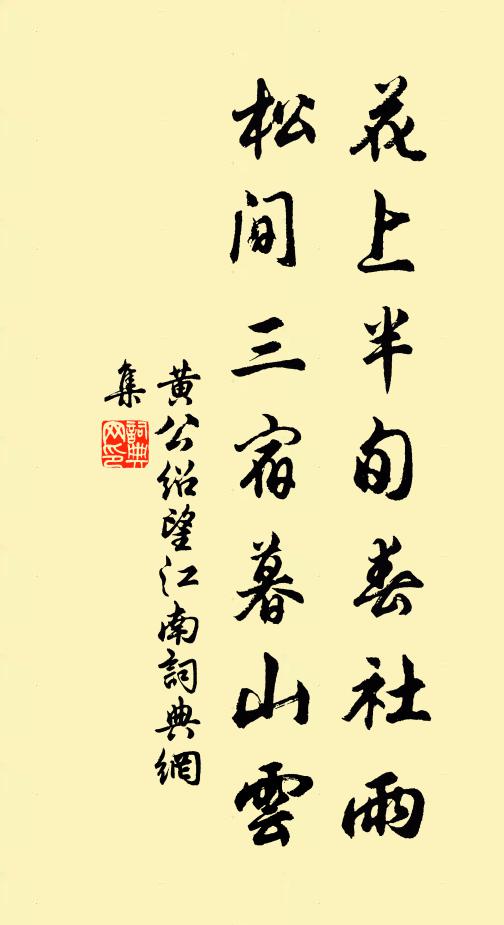 花上半旬春社雨
松间三宿暮山雲
黄公绍望江南詞典網
集
詞典
网印